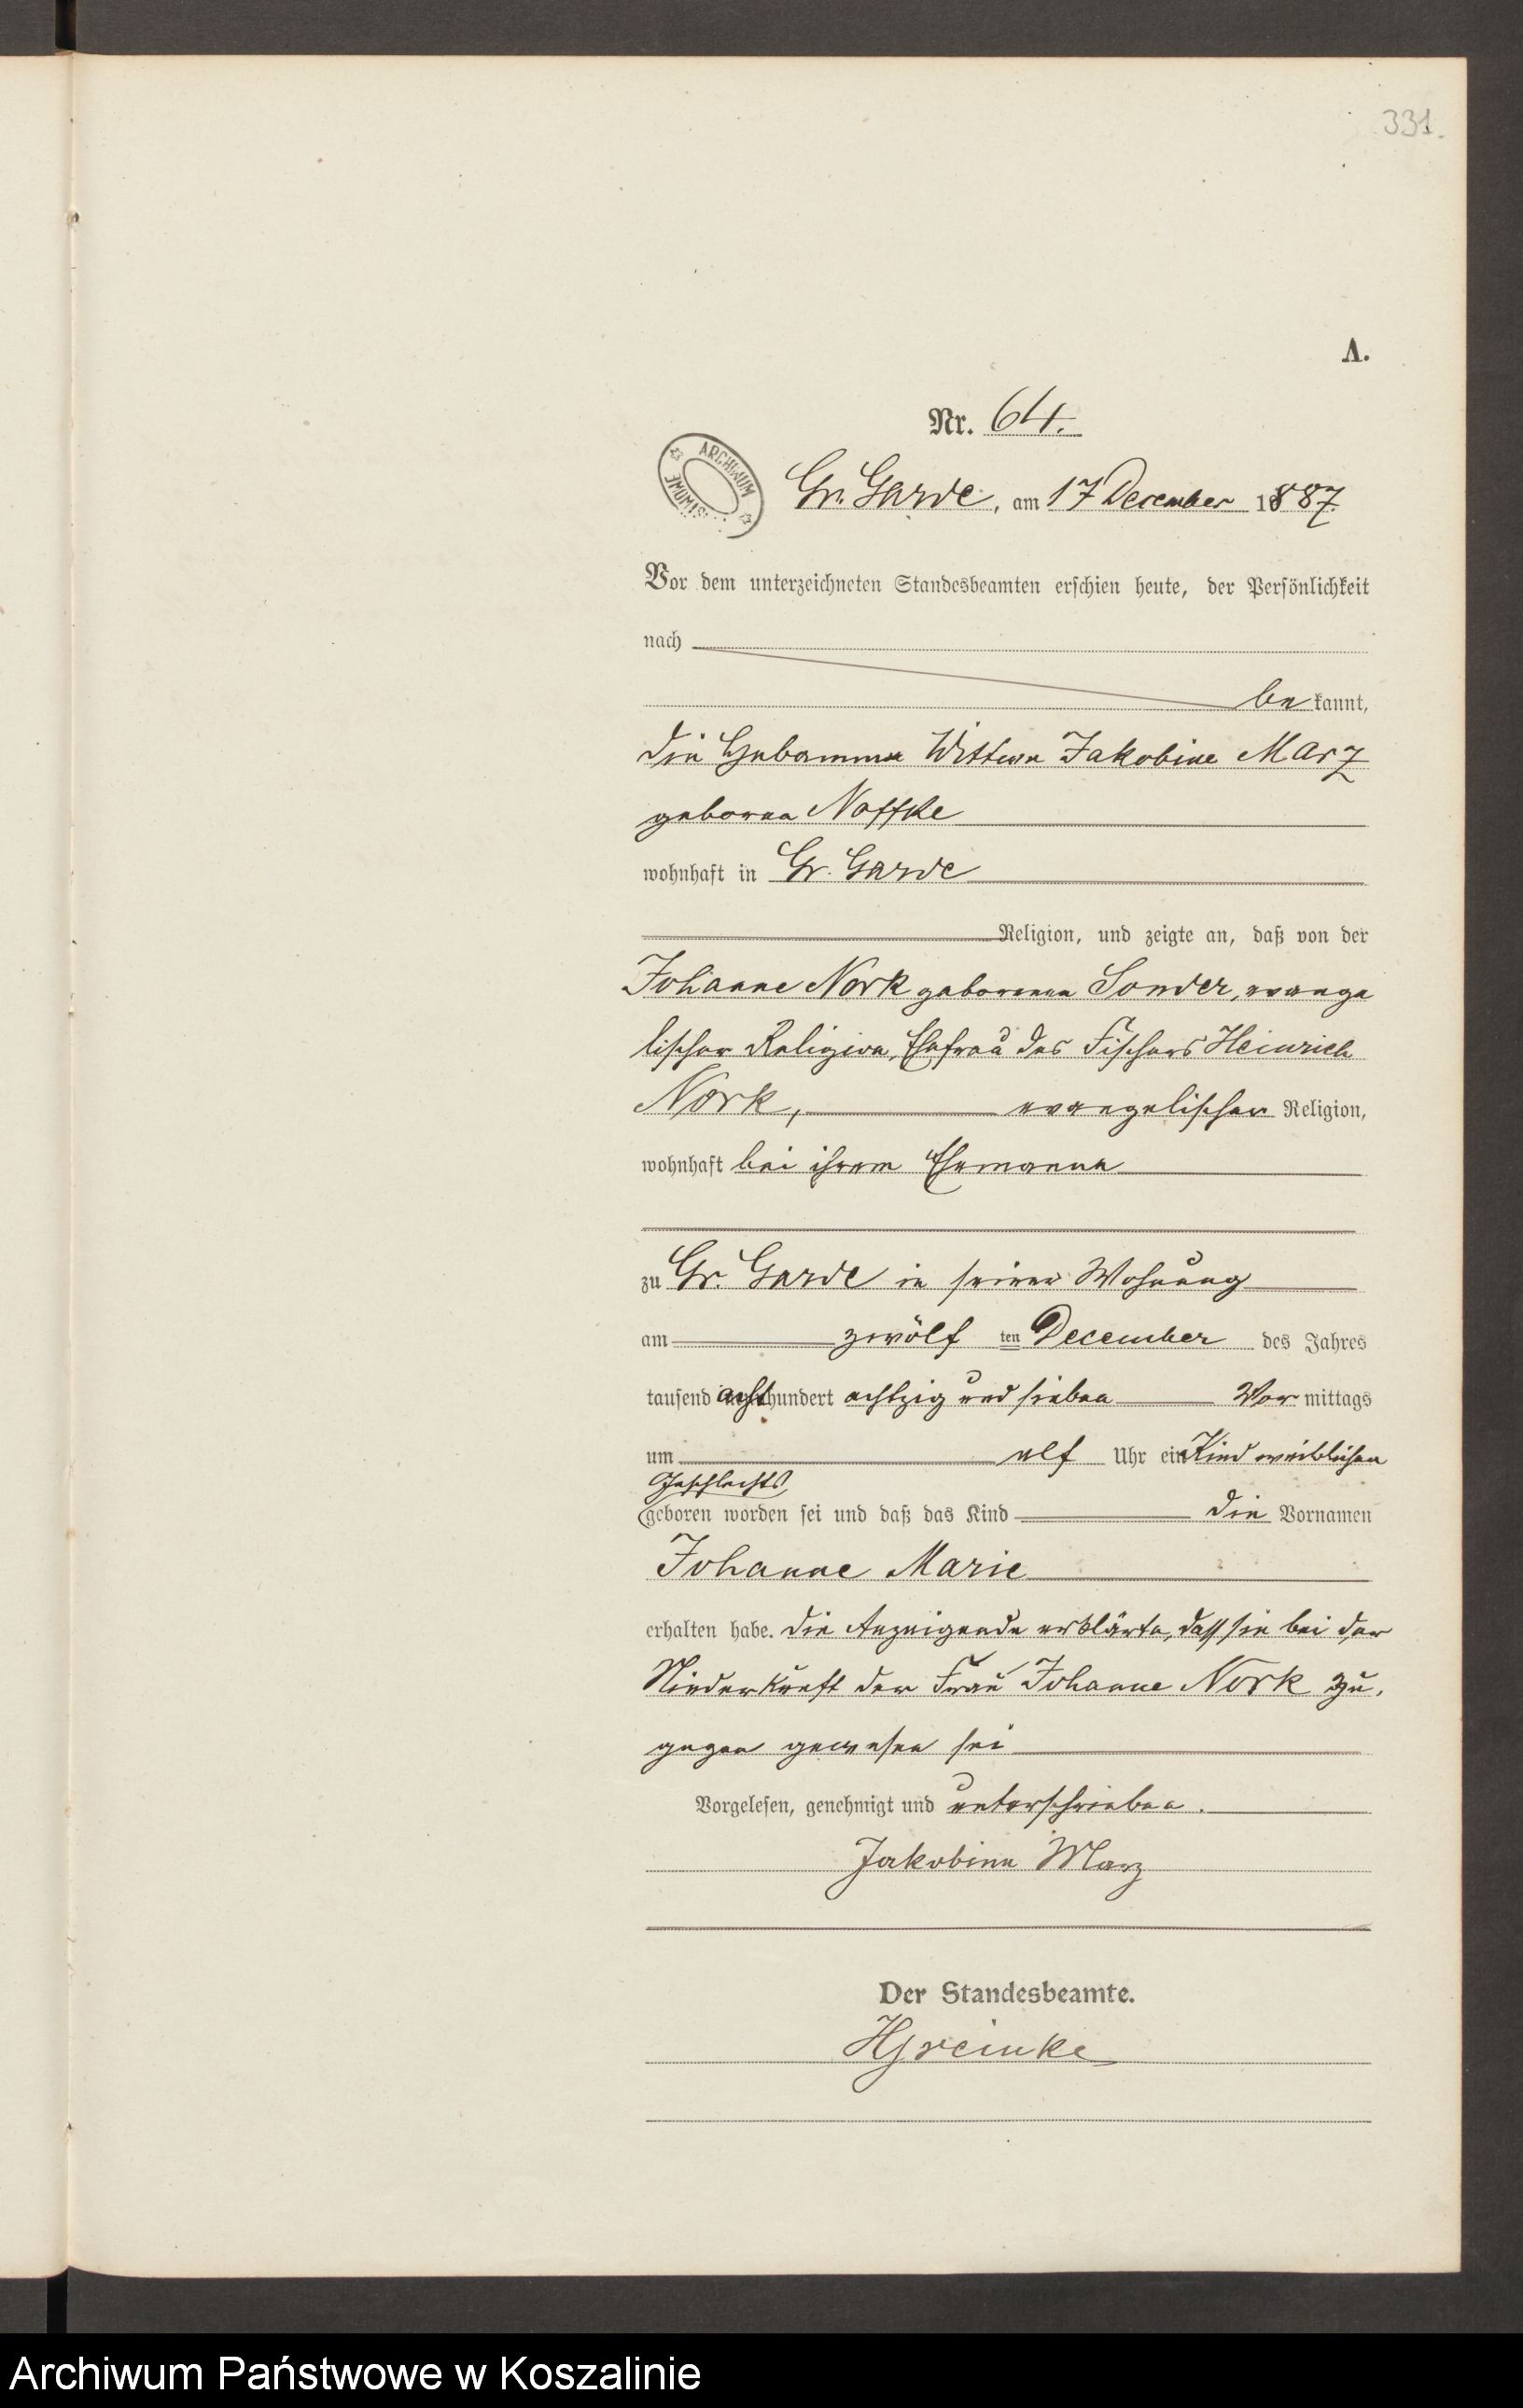 331.
A.
Nr. 64.
ARCHIWUM
Gr. Garde, am 17 December 1887.
Vor dem unterzeichneten Standesbeamten erschien heute, der Persönlichkeit
nach
bekannt,
die Hebamme Wittwe Jakobine Marz
geborne Noffke
wohnhaft in Gr. Garde
Religion, und zeigte an, daß von der
Johanne Nork geborenen Sonder, evange
lischer Religion, Ehefrau des Fischers Heinrich
Nork, evangelischer Religion,
wohnhaft bei ihrem Ehemanne
zu Gr. Garde in seiner Wohnung
am zwölf ten December des Jahres
tausend acht hundert achtzig und sieben Vor mittags
um elf Uhr ein Kind weiblichen
Geschlechts,
geboren worden sei und daß das Kind die Vornamen
Johanne Marie
erhalten habe. Die Anzeigende erklärte, daß sie bei der
Niederkunft der Frau Johanne Nork zu,
gegen gewesen sei
Vorgelesen, genehmigt und unterschrieben.
Jakobine Marz
Der Standesbeamte.
HGreinke
Archiwum Państwowe w Koszalinie